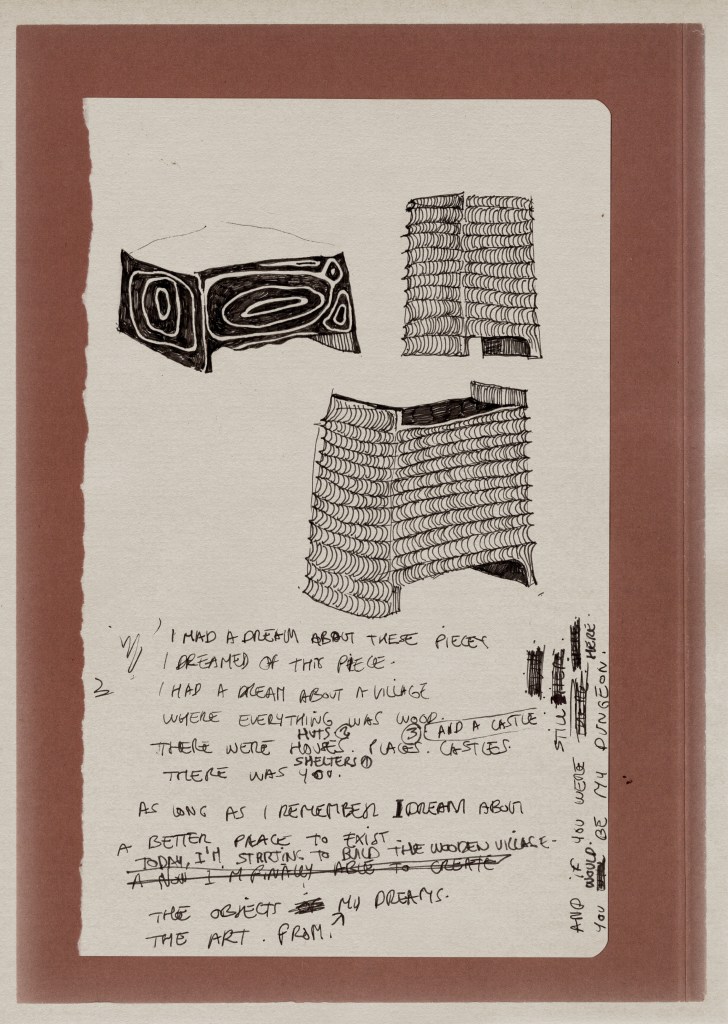 I HAD A DREAM ABOUT THESE PIECES
I DREAMED OF THIS PIECE.
2 I HAD A DREAM ABOUT A VILLAGE
WHERE EVERYTHING WAS WOOD.
HUTS 2 3 AND A CASTLE
THERE WERE HOUSES. PLACES. CASTLES.
SHELTERS 1
THERE WAS YOU.
AS LONG AS I REMEMBER I DREAM ABOUT
A BETTER PLACE TO EXIST
TODAY, I'M STARTING TO BUILD THE WOODEN VILLAGE.
A NOW I'M FINALLY ABLE TO CREATE
THE OBJECTS MY DREAMS.
THE ART. FROM.
AND IF YOU WERE STILL HERE.
YOU WOULD BE MY DUNGEON.